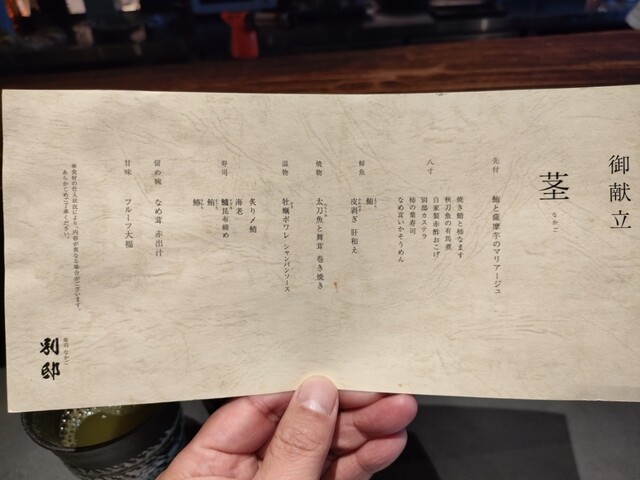 御献立
茎
なかご
先付
鮑と薩摩芋のマリアージュ
八寸
焼き鯖と柿なます
秋刀魚の有馬煮
自家製赤酢おこげ
別邸カステラ
柿の葉寿司
なめ茸いかそうめん
鮮魚
鮪
皮剥ぎ 肝和え
焼物
太刀魚と舞茸 巻き焼き
温物
牡蠣ポワレ シャンパンソース
寿司
炙り〆鯖
海老
鱸昆布締め
鮪
留め椀
なめ茸 赤出汁
甘味
フルーツ大福
※食材の仕入状況により、内容が異なる場合がございます。
あらかじめご了承ください。
なかご
別邸